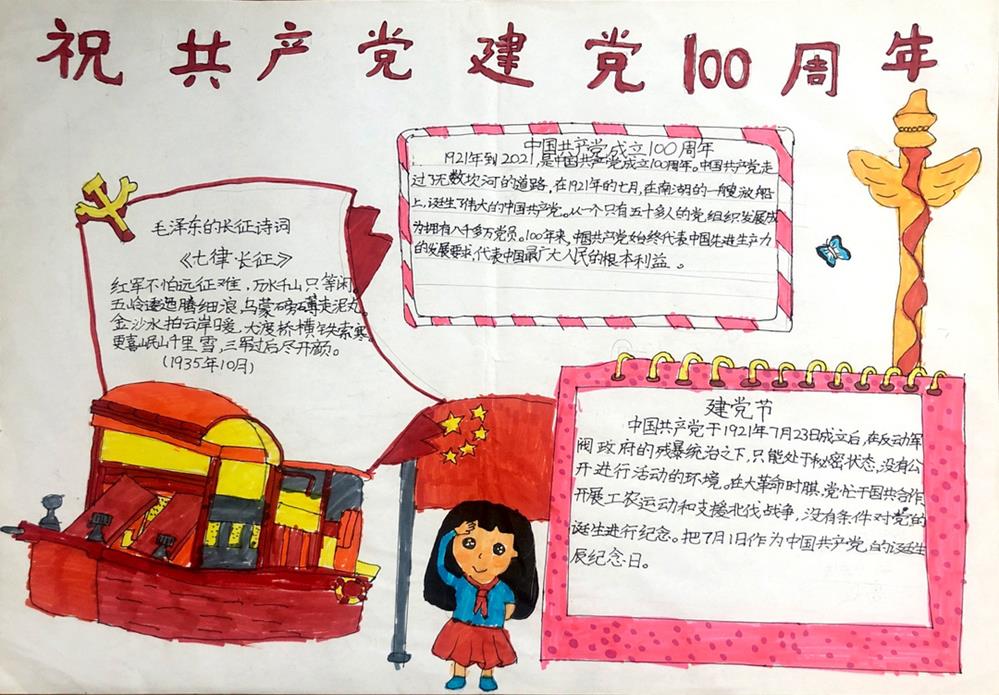 祝共产党建党100周年
中国共产党成立100周年
1921年到2021,是中国共产党成立100周年。中国共产党走
过了无数坎河的道路,在1921年的七月,在南湖的一艘放船
上,诞生了伟大的中国共产党。从一个只有五十多人的党组织发展成
为拥有八千多万党员。100年来,中国共产党始终代表中国先进生产力
的发展要求,代表中国最广大人民的根本利益。
毛泽东的长征诗词
《七律·长征》
红军不怕远征难,万水千山只等闲
五岭逶迤腾细浪,乌蒙磅礴走泥丸。
金沙水拍云岸暖,大渡桥横铁索寒
更喜岷山千里雪,三军过后尽开颜。
(1935年10月)
建党节
中国共产党于1921年7月23日成立后,在反动军
阀政府的残暴统治之下,只能处于秘密状态,没有公
开进行活动的环境。在大革命时期,党忙于国共合作,
开展工农运动和支援北伐战争,没有条件对党的
诞生进行纪念。把7月1日作为中国共产党的诞生
辰纪念日。